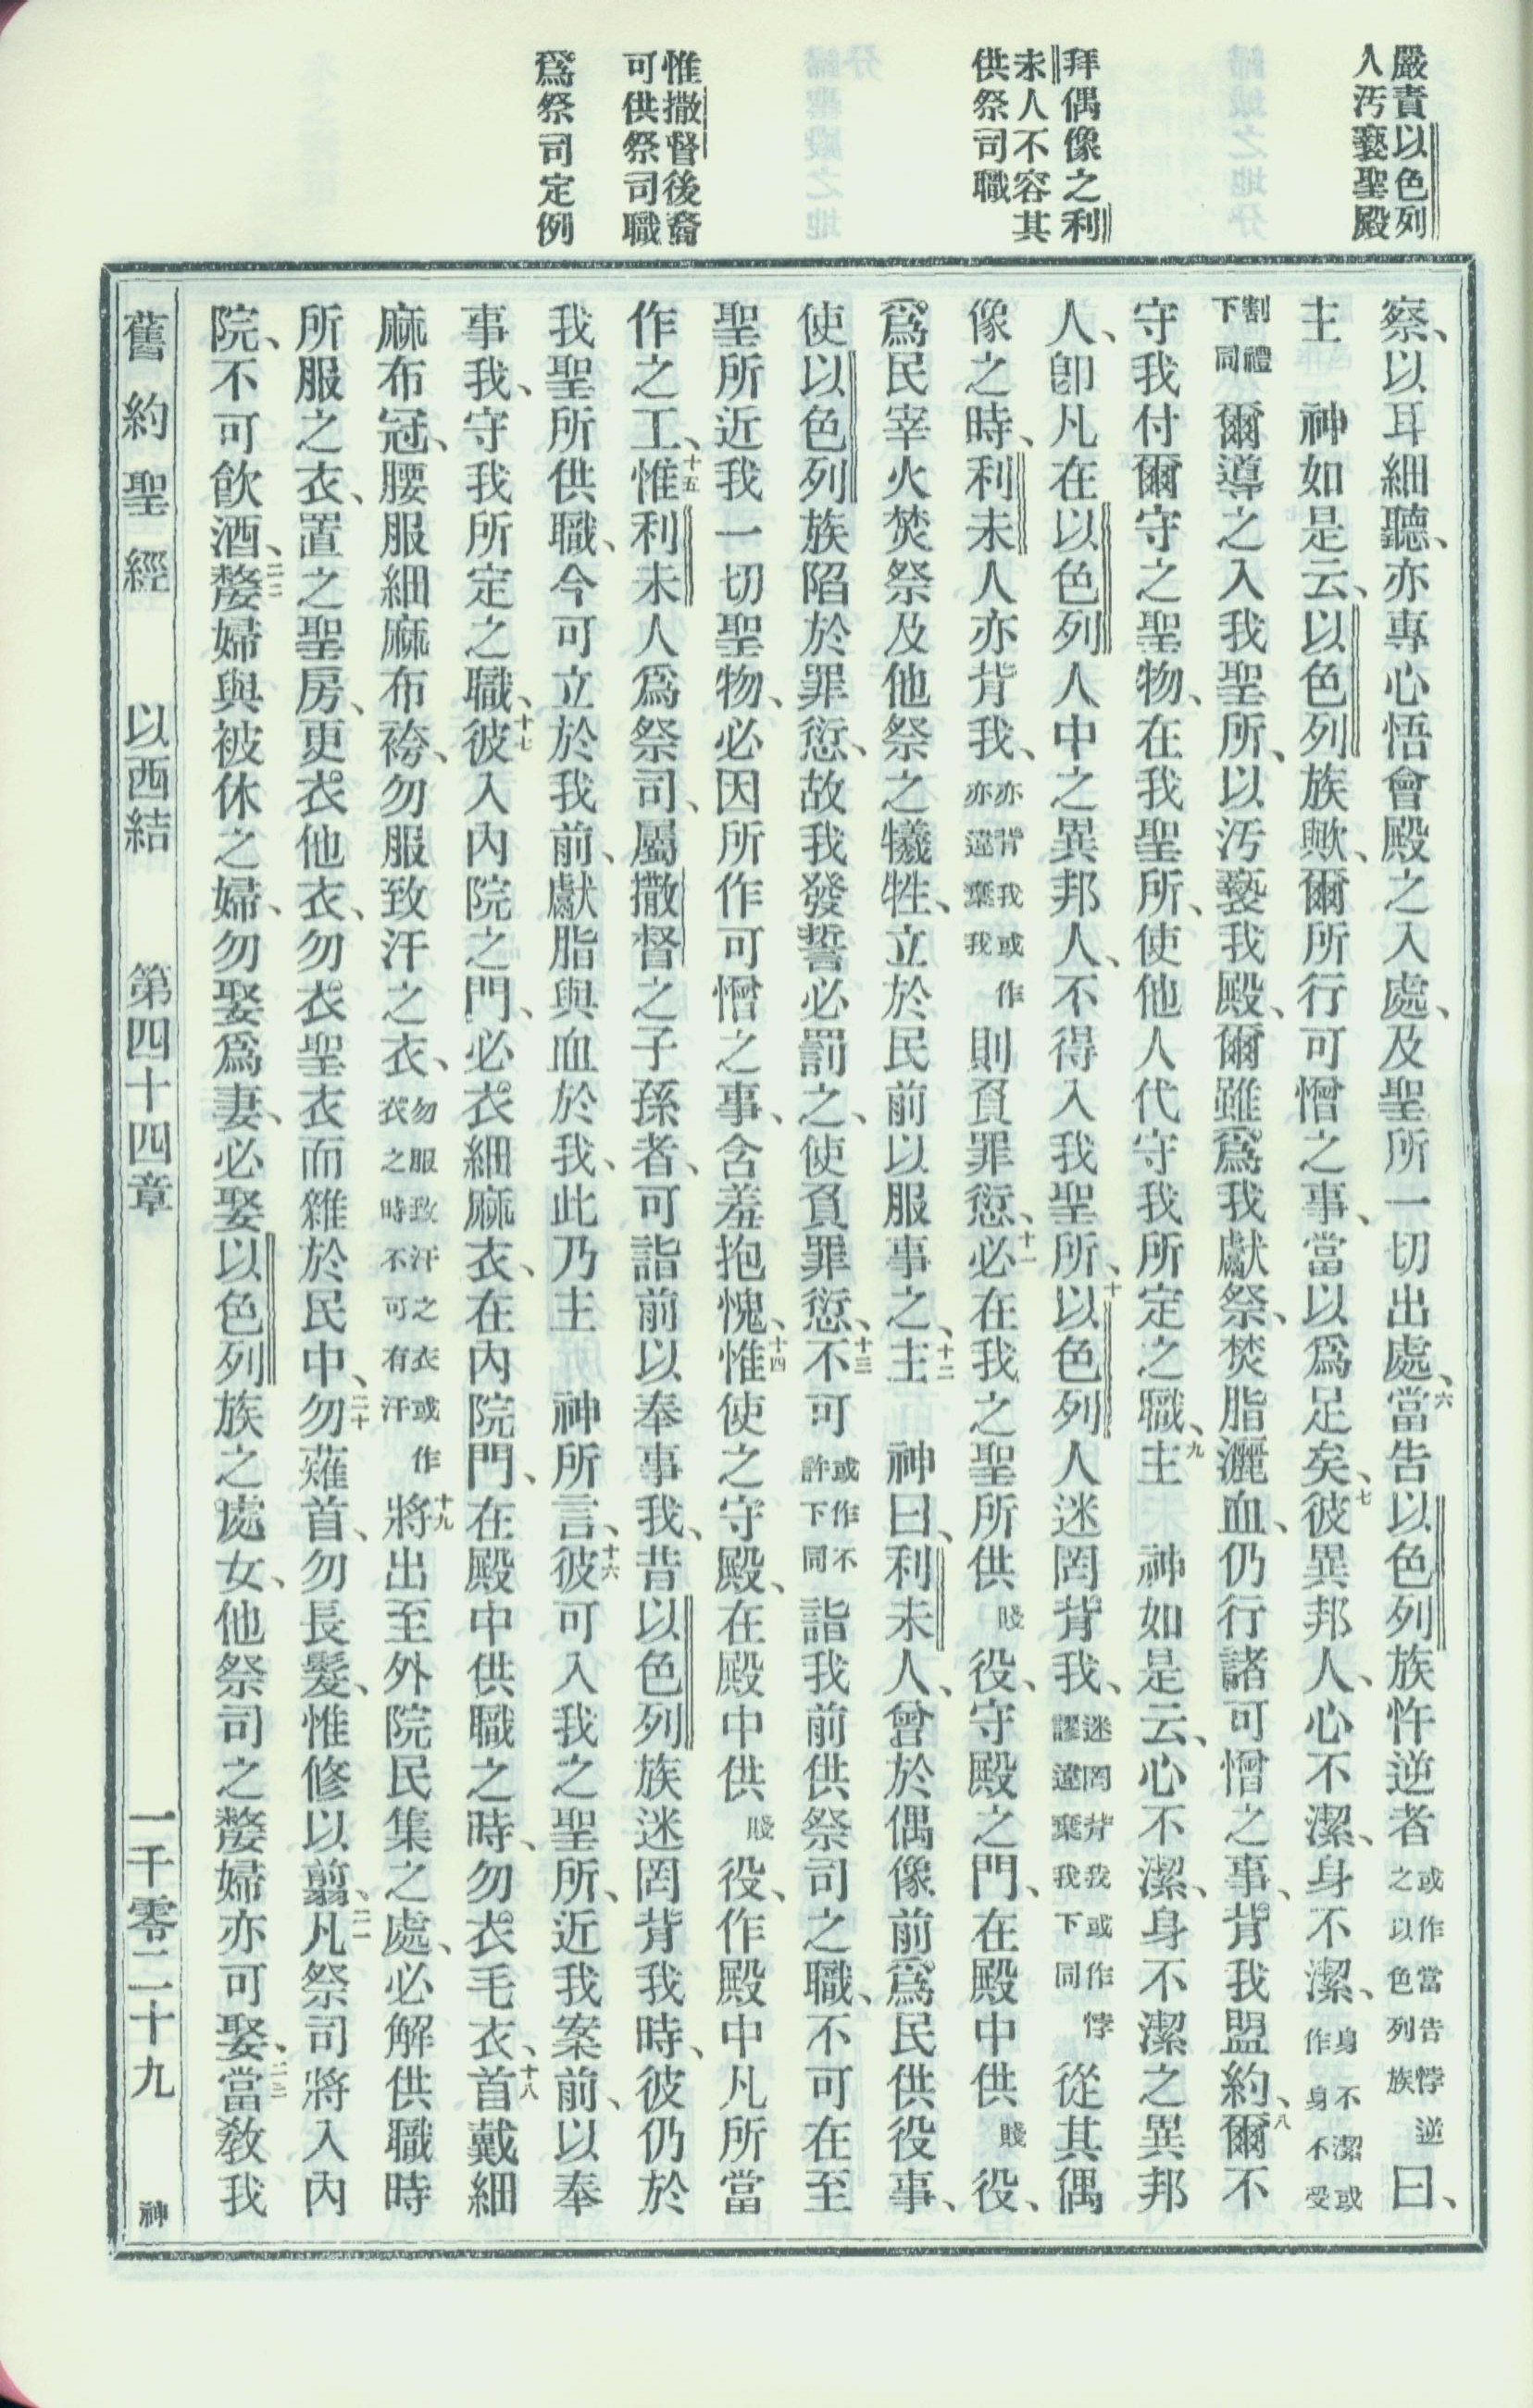 嚴責以色列
人汚褻聖殿
拜偶像之利
未人不容其
供祭司職
惟撒督後裔
可供祭司職
爲祭司定例
察、以耳細聽、亦專心悟會殿之入處、及聖所一切出處、六當告以色列族忤逆者或作當告悖逆之以色列族曰、
主　神如是云、以色列族歟、爾所行可憎之事、當以爲足矣、七彼異邦人、心不潔、身不潔、身不潔或作身不受
割禮下同爾導之入我聖所、以汚褻我殿、爾雖爲我獻祭、焚脂灑血、仍行諸可憎之事、背我盟約、八爾不
守我付爾守之聖物、在我聖所、使他人代守我所定之職、九主　神如是云、心不潔、身不潔之異邦
人、卽凡在以色列人中之異邦人、不得入我聖所、十以色列人迷罔背我、迷罔背我或作悖謬違棄我下同從其偶
像之時、利未人亦背我、亦背我或作亦違棄我則負罪愆、十一必在我之聖所供賤役、守殿之門、在殿中供賤役、
爲民宰火焚祭及他祭之犧牲、立於民前以服事之、十二主　神曰、利未人、曾於偶像前爲民供役事、
使以色列族陷於罪愆、故我發誓必罰之、使負罪愆、十三不可或作不許下同詣我前供祭司之職、不可在至
聖所近我一切聖物、必因所作可憎之事、含羞抱愧、十四惟使之守殿、在殿中供賤役、作殿中凡所當
作之工、十五惟利未人爲祭司、屬撒督之子孫者、可詣前以奉事我、昔以色列族迷罔背我時、彼仍於
我聖所供職、今可立於我前、獻脂與血於我、此乃主　神所言、十六彼可入我之聖所、近我案前、以奉
事我、守我所定之職、十七彼入內院之門、必衣細麻衣、在內院門、在殿中供職之時、勿衣毛衣、十八首戴細
麻布冠、腰服細麻布袴、勿服致汗之衣、勿服致汗之衣或作衣之時不可有汗十九將出至外院民集之處、必解供職時
所服之衣、置之聖房、更衣他衣、勿衣聖衣而雜於民中、二十勿薙首、勿長髮、惟修以翦、二一凡祭司將入內
院、不可飮酒、二二嫠婦與被休之婦、勿娶爲妻、必娶以色列族之處女、他祭司之嫠婦亦可娶、二三當敎我
舊約聖經　以西結　第四十四章　一千零二十九　神